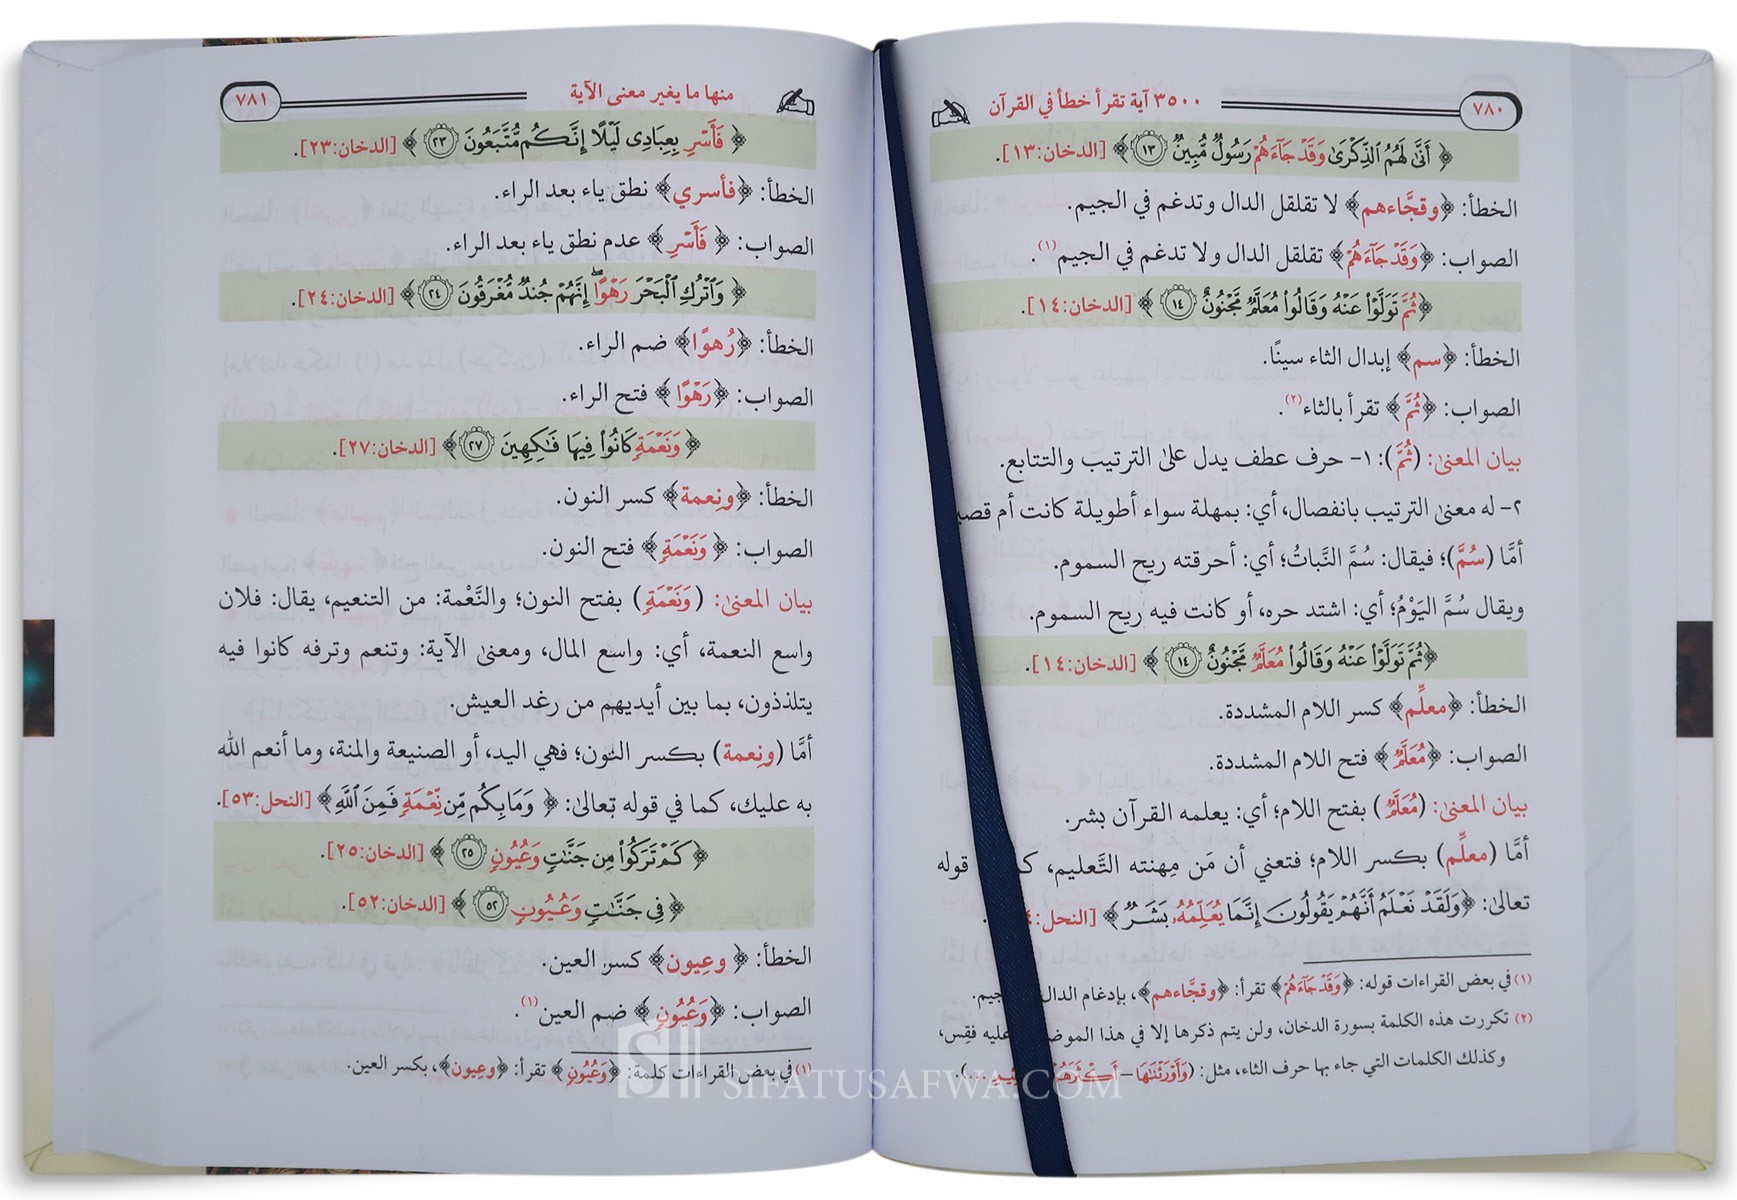 ٧٨٠
٣٥٠٠ آية تقرأ خطأ في القرآن
﴿ أَنَّىٰ لَهُمُ ٱلذِّكْرَىٰ وَقَدْ جَآءَهُمْ رَسُولٌ مُّبِينٌ ١٣ ﴾ [الدخان:١٣].
الخطأ: ﴿وقجَّاءهم﴾ لا تقلقل الدال وتدغم في الجيم.
الصواب: ﴿وَقَدْ جَآءَهُمْ﴾ تقلقل الدال ولا تدغم في الجيم(١).
﴿ثُمَّ تَوَلَّوْا۟ عَنْهُ وَقَالُوا۟ مُعَلَّمٌ مَّجْنُونٌ ١٤ ﴾ [الدخان:١٤].
الخطأ: ﴿سم﴾ إبدال الثاء سينًا.
الصواب: ﴿ثُمَّ﴾ تقرأ بالثاء(٢).
بيان المعنىٰ: (ثُمَّ): ١- حرف عطف يدل علىٰ الترتيب والتتابع.
٢- له معنىٰ الترتيب بانفصال، أي: بمهلة سواء أطويلة كانت أم
أمَّا (سُمَّ)؛ فيقال: سُمَّ النَّباتُ؛ أي: أحرقته ريح السموم.
ويقال سُمَّ اليَوْمُ؛ أي: اشتد حره، أو كانت فيه ريح السموم.
﴿ثُمَّ تَوَلَّوْا۟ عَنْهُ وَقَالُوا۟ مُعَلَّمٌ مَّجْنُونٌ ١٤ ﴾ [الدخان:١٤].
الخطأ: ﴿معلِّم﴾ كسر اللام المشددة.
الصواب: ﴿مُعَلَّمٌ﴾ فتح اللام المشددة.
بيان المعنىٰ: (مُعَلَّمٌ) بفتح اللام؛ أي: يعلمه القرآن بشر.
أمَّا (معلِّم) بكسر اللام؛ فتعني أن مَن مِهنته التَّعليم، قوله
تعالىٰ: ﴿وَلَقَدْ نَعْلَمُ أَنَّهُمْ يَقُولُونَ إِنَّمَا يُعَلِّمُهُۥ بَشَرٌ﴾ [النحل:
(١) في بعض القراءات قوله: ﴿وَقَدْ جَآءَهُمْ﴾ تقرأ: ﴿وقجَّاءهم﴾، بإدغام الدال
(٢) تكررت هذه الكلمة بسورة الدخان، ولن يتم ذكرها إلا في هذا فقِس،
وكذلك الكلمات التي جاء بها حرف الثاء، مثل: (وَأَوْرَثْنَٰهَا – أَكْثَرَهُمْ ...).
٧٨١
منها ما يغير معنى الآية
﴿ فَأَسْرِ بِعِبَادِى لَيْلًا إِنَّكُم مُّتَّبَعُونَ ٢٣ ﴾ [الدخان:٢٣].
الخطأ: ﴿فأسري﴾ نطق ياء بعد الراء.
الصواب: ﴿ فَأَسْرِ ﴾ عدم نطق ياء بعد الراء.
﴿ وَٱتْرُكِ ٱلْبَحْرَ رَهْوًا ۖ إِنَّهُمْ جُندٌ مُّغْرَقُونَ ٢٤ ﴾ [الدخان:٢٤].
الخطأ: ﴿رُهوًا﴾ ضم الراء.
الصواب: ﴿رَهْوًا ﴾ فتح الراء.
﴿ وَنَعْمَةٍ كَانُوا۟ فِيهَا فَٰكِهِينَ ٢٧ ﴾ [الدخان:٢٧].
الخطأ: ﴿ونِعمة﴾ كسر النون.
الصواب: ﴿ وَنَعْمَةٍ ﴾ فتح النون.
بيان المعنىٰ: (وَنَعْمَةٍ) بفتح النون؛ والنَّعْمة: من التنعيم، يقال: فلان
واسع النعمة، أي: واسع المال، ومعنىٰ الآية: وتنعم وترفه كانوا فيه
يتلذذون، بما بين أيديهم من رغد العيش.
أمَّا (ونِعمة) بكسر النون؛ فهي اليد، أو الصنيعة والمنة، وما أنعم الله
به عليك، كما في قوله تعالىٰ: ﴿ وَمَا بِكُم مِّن نِّعْمَةٍ فَمِنَ ٱللَّهِ﴾ [النحل:٥٣].
﴿ كَمْ تَرَكُوا۟ مِن جَنَّٰتٍ وَعُيُونٍ ٢٥ ﴾ [الدخان:٢٥].
﴿ فِى جَنَّٰتٍ وَعُيُونٍ ٥٢ ﴾ [الدخان:٥٢].
الخطأ: ﴿ وعِيون﴾ كسر العين.
الصواب: ﴿وَعُيُونٍ﴾ ضم العين(١).
(١) في بعض القراءات كلمة: ﴿وَعُيُونٍ﴾ تقرأ: ﴿وعِيون﴾، بكسر العين.
SIFATUSAFWA.COM